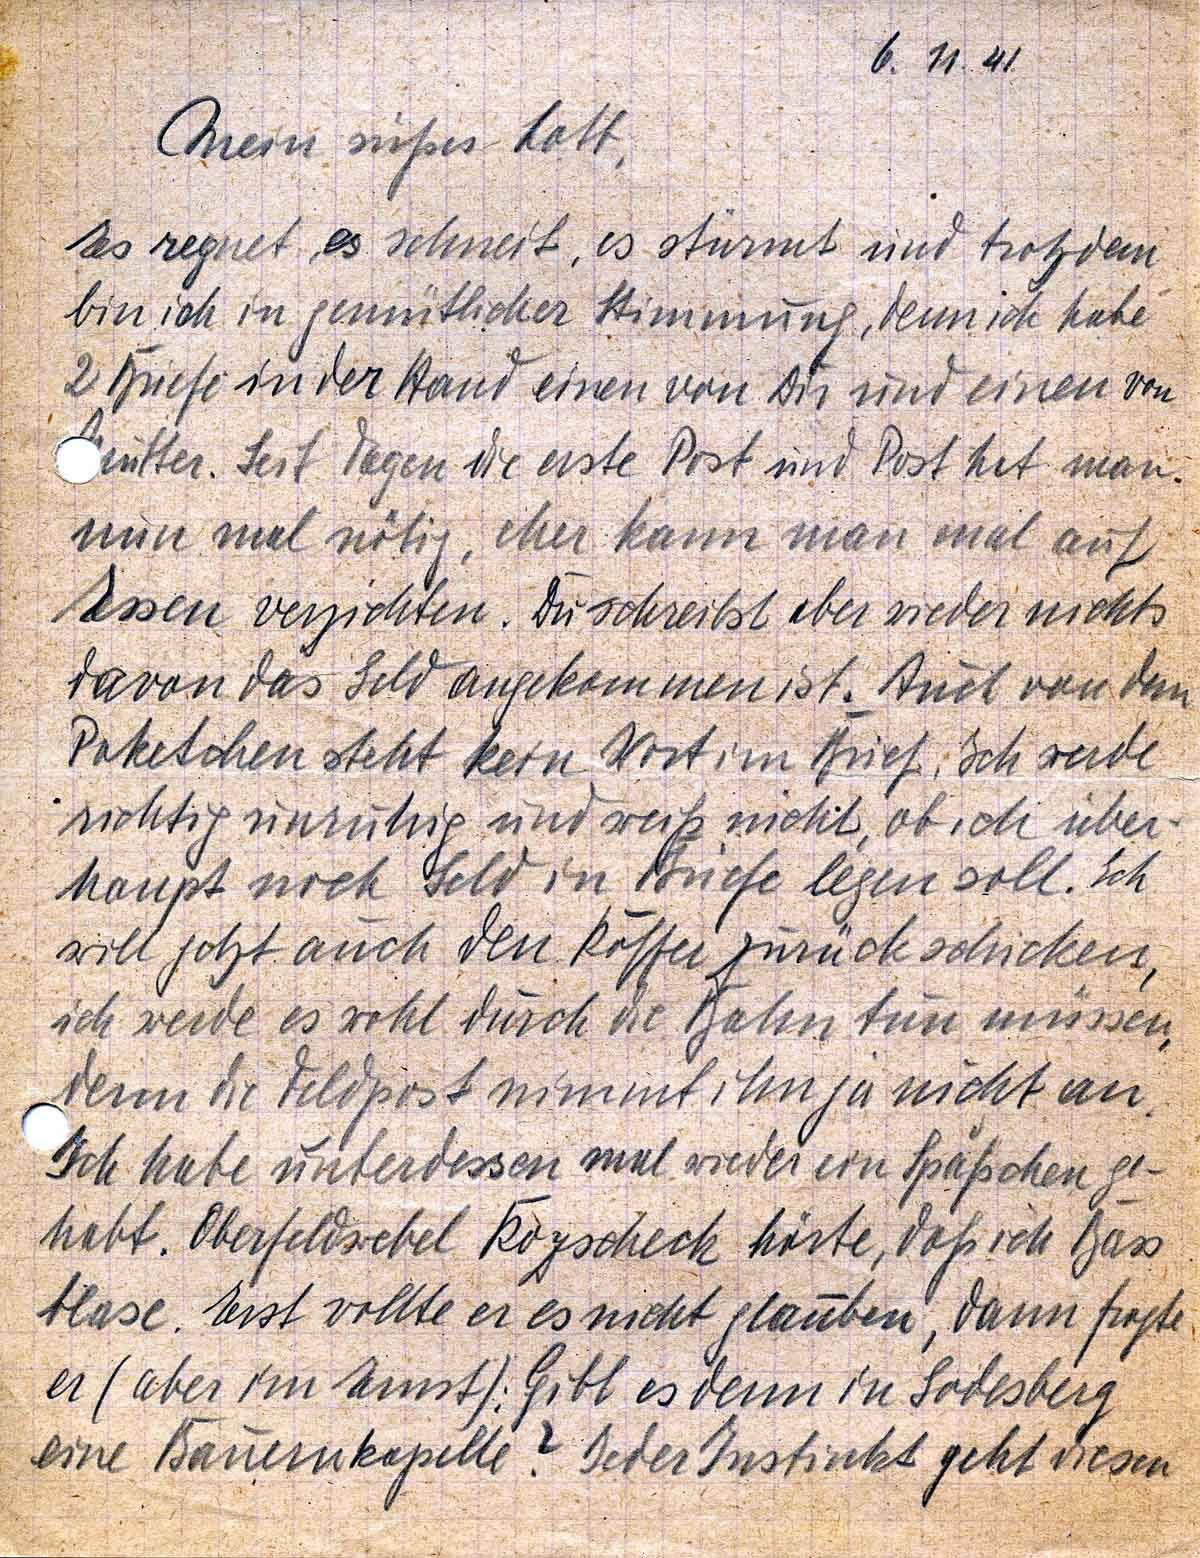 6. 11. 41.
Mein süßes Lott,
Es regnet, es schneit, es stürmt und trotzdem
bin ich in gemütlicher Stimmung, denn ich habe
2 Briefe in der Hand einen von Dir und einen von
Mutter. Seit Tagen die erste Post und Post hat man
nun mal nötig, eher kann man mal auf
Essen verzichten. Du schreibst aber wieder nichts
davon das Geld angekommen ist. Auch von dem
Paketchen steht kein Wort im Brief. Ich werde
richtig unruhig und weiß nicht, ob ich über-
haupt noch Geld in Briefe legen soll. Ich
will jetzt auch den Koffer zurückschicken,
ich werde es wohl durch die Bahn tun müssen,
denn die Feldpost nimmt ihn ja nicht an.
Ich habe unterdessen mal wieder ein Späßchen ge-
habt. Oberfeldwebel hörte, daß ich Bass
blase. Erst wollte er es nicht glauben, dann fragte
er (aber im Ernst): Gibt es denn in Godesberg
eine Bauernkapelle? Jeder Instinkt geht diesen